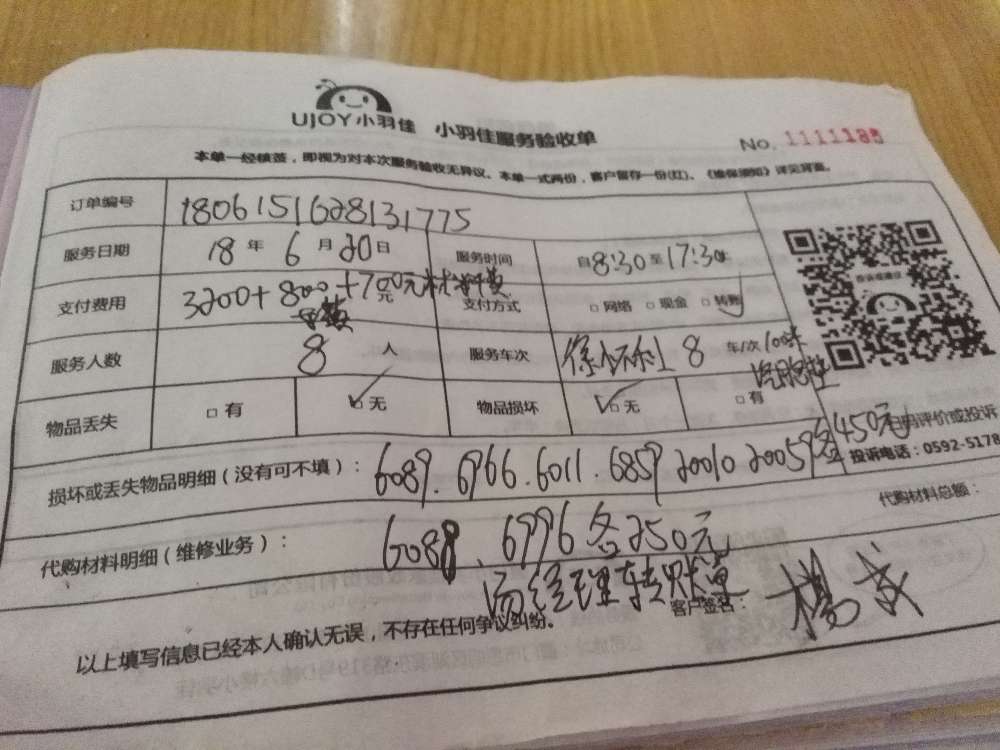 UJOY小羽佳 小羽佳服务验收单
No. 1111185
本单一经填签，即视为对本次服务验收无异议。本单一式两份，客户留存一份(红)、《维保须知》详见背面。
订单编号 180615162813 1775
服务日期 18 年 6 月 20 日 服务时间 自8:30至17:30
支付费用 3200+800+700元材料费 支付方式 □网络 □现金 □转账
服务人数 8 人 服务车次 8 车/次
物品丢失 □有 □无 物品损坏 □无 □有
投诉或建议
450元
扫码评价或投诉
投诉电话：0592-5178
损坏或丢失物品明细（没有可不填）： 6089.6966.6011.6859 20010.20059各
代购材料总额：
代购材料明细（维修业务）： 6088.6996各250元
汤经理转账单
客户签名： 杨成
以上填写信息已经本人确认无误，不存在任何争议纠纷。